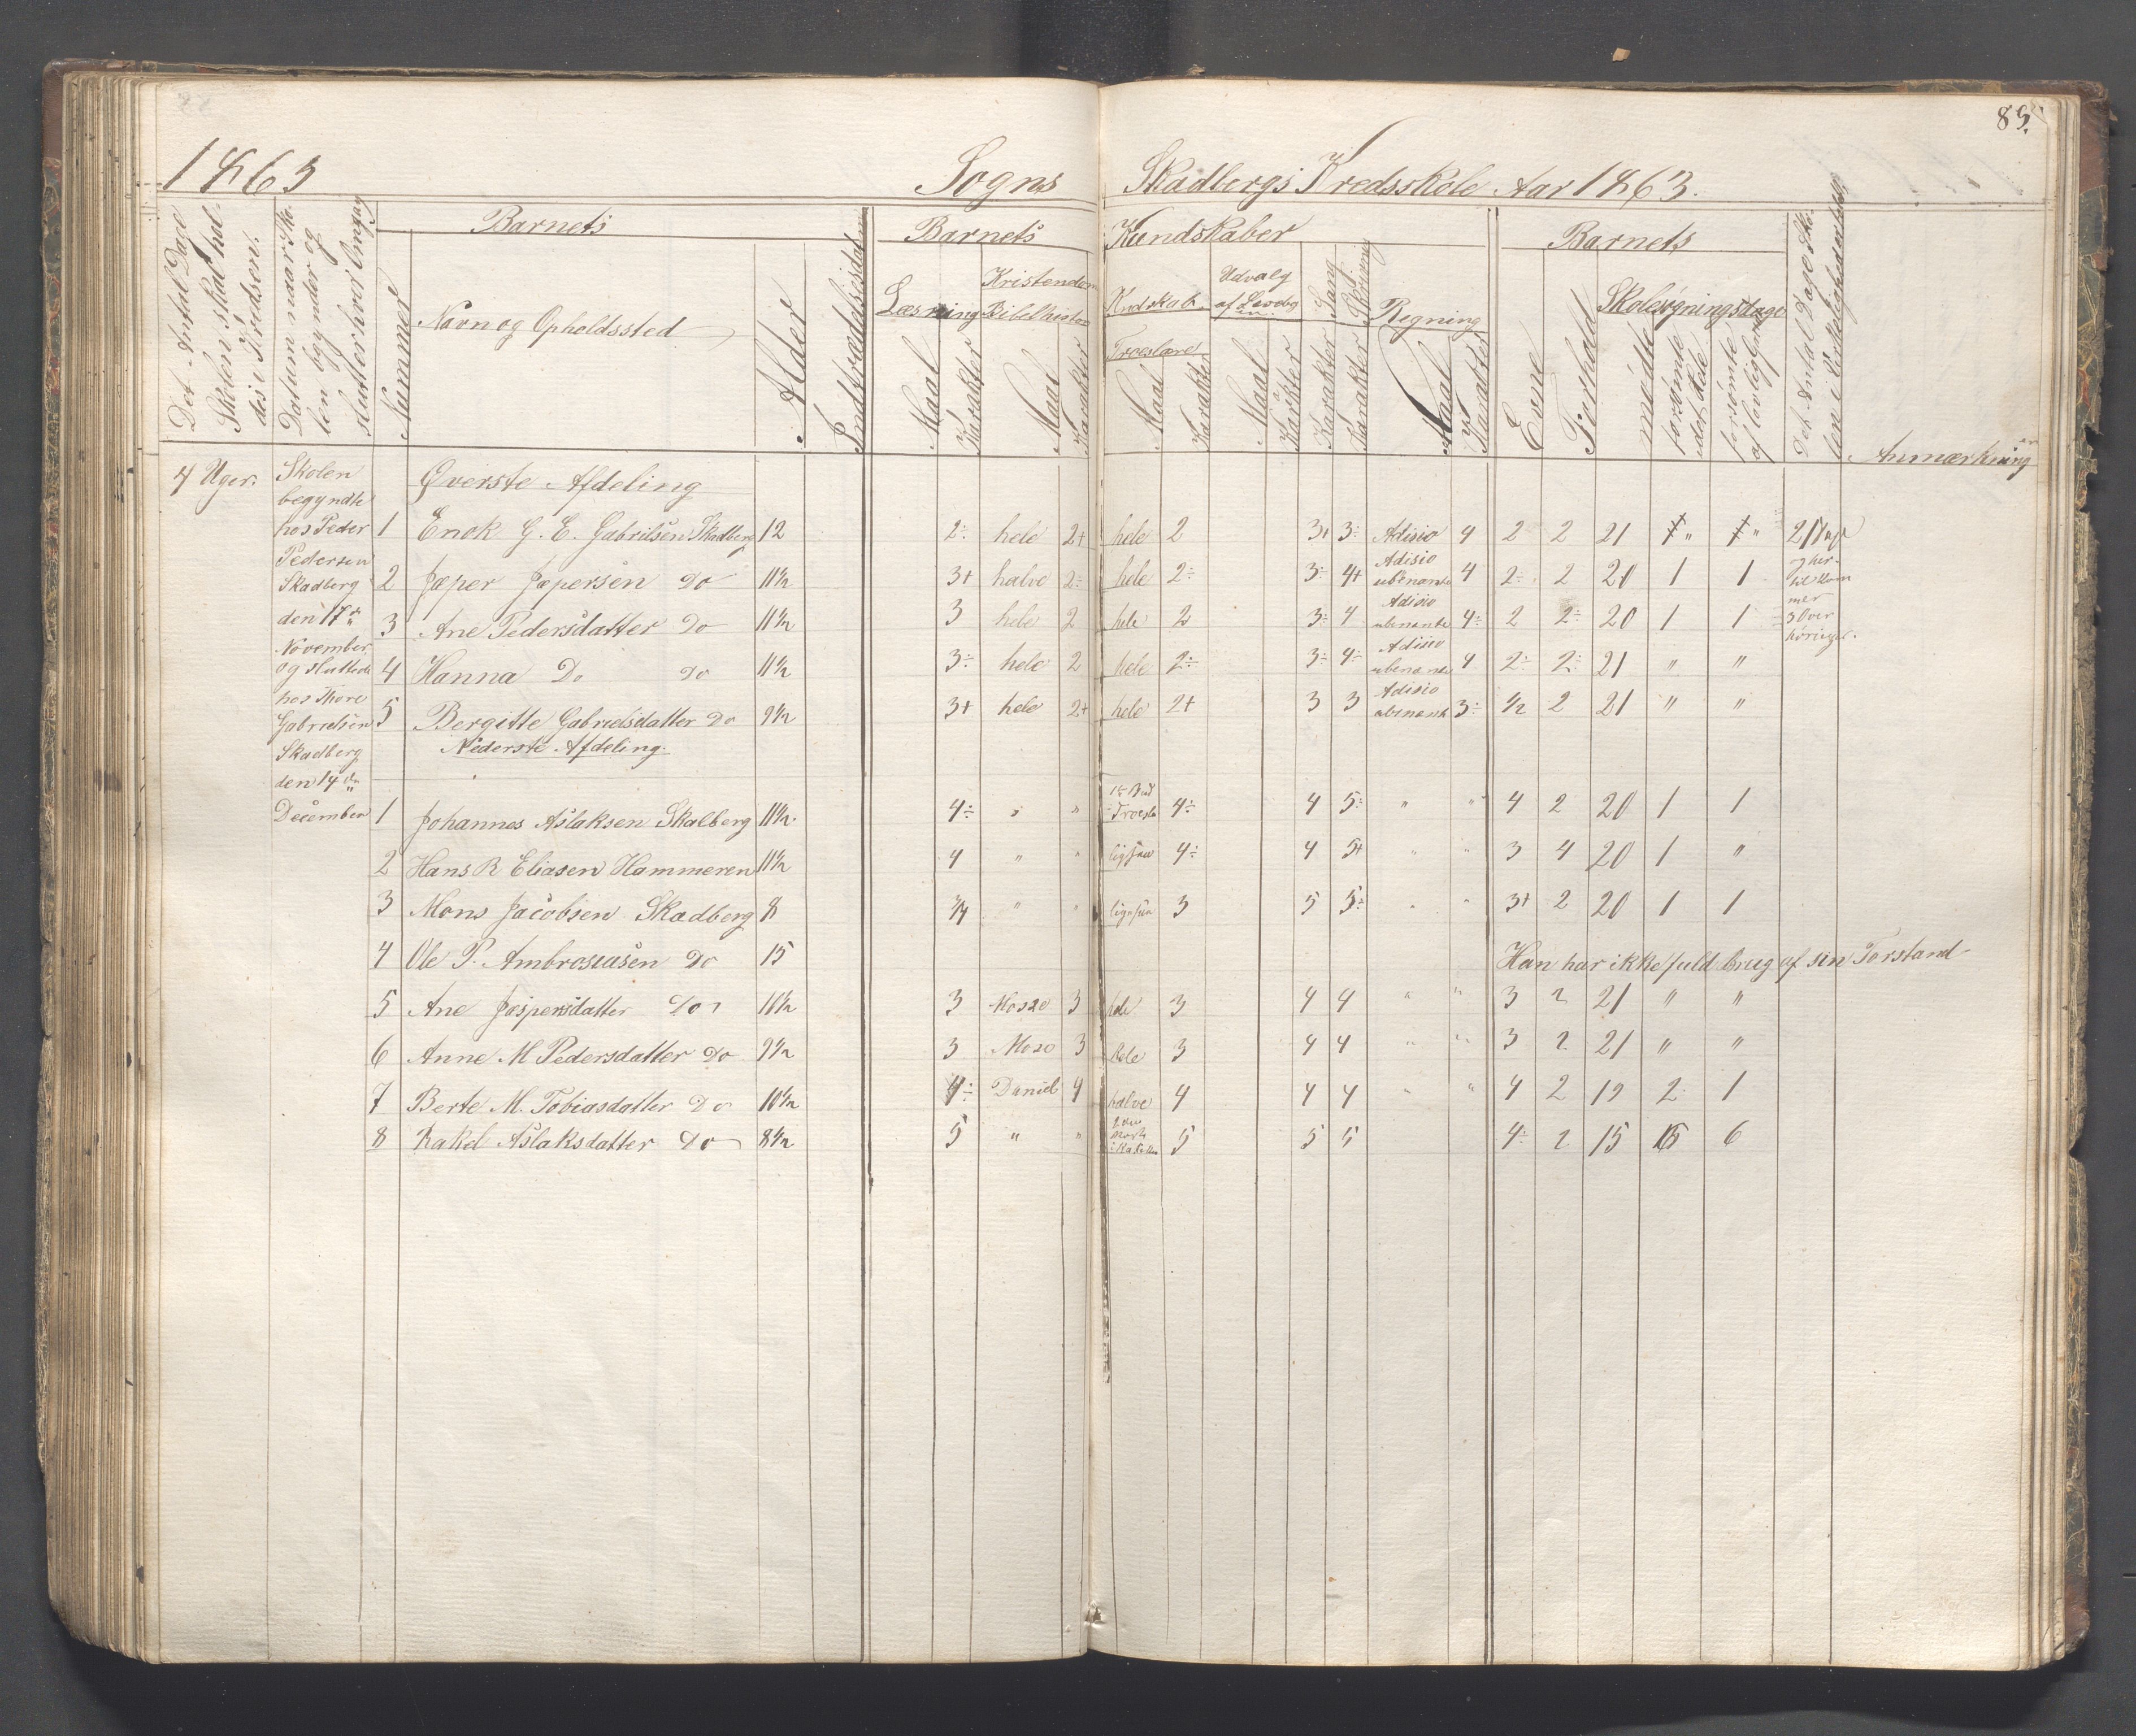 85.
1863 Sogns Skadbergs Kredsskole Aar 1863.
Det Antal Dage
Skolen skal hol-
des i Kredsen.
Datum naar Sko-
len begynder og
slutter hver Omgang
Nummer
Barnets
Navn og Opholdssted
Alder
Indtrædelsesdatum
Barnets Kundskaber
Læsning
Maal
Karakter
Kristendom
Bibelhistorie
Maal
Karakter
Kndskab
Troeslære
Maal
Karakter
Udvalg
af Læsebog
Maal
Karakter
Sang
Karakter
Skrivning
Karakter
Regning
Maal
Karakter
Barnets
Evne
Forhold
Skolesøgningsdage
mødte
forsømte
det Hele
forsømte
af lovlig Grund
Det Antal Dage Sko-
len i Virkeligheden
Anmærkning
4 Uger.
Skolen
begyndte
hos Peder
Pedersen
Skadberg
den 17de
November
og sluttede
hos Thore
Gabrielsen
Skadberg
den 14de
December
Øverste Afdeling
1 Enok G. E. Gabrilsen Skadberg 12 2÷ hele 2+ hele 2 3+ 3÷ Adisio 4 2 2 21 " " 21 Dage
2 Jæper Jæpersen Do 11½ 3+ halve 2÷ hele 2÷ 3÷ 4+ Adisio ubenante 4 2÷ 2 20 1 1
3 Ane Pedersdatter Do 11½ 3 hele 2 hele 2 3÷ 4 Adisio ubenante 4÷ 2 2÷ 20 1 1
4 Hanna Do Do 11½ 3÷ hele 2 hele 2÷ 3÷ 4÷ Adisio ubenante 4 2÷ 2÷ 21 " "
5 Bergitte Gabrielsdatter Do 9½ 3+ hele 2+ hele 2+ 3 3 Adisio ubenante 3÷ ½ 2 21 " "
og her-
til kom
mer
3 Over
høringer.
Nederste Afdeling.
1 Johannes Aslaksen Skalberg 11½ 4÷ " " 4÷ 4 5÷ " " 4 2 20 1 1
2 Hans R Eliasen Hammeren 11½ 4 " " 4÷ 4 5+ " " 3 4 20 1 "
3 Mons Jacobsen Skadberg 8 ¾ " " 3 5 5÷ " " 3+ 2 20 1 1
4 Ole P. Ambrosiusen Do 15 Han har ikke fuld brug af sin Forstand
5 Ane Jespersdatter Do 10½ 3 Mose 3 hele 3 4 4 " " 3 2 21 " "
6 Anne M Pedersdatter Do 9½ 3 Mose 3 hele 3 4 4 " " 3 2 21 " "
7 Berte M. Tobiasdatter Do 10½ 4÷ Daniel 4 halve 4 4 4 " " 4 2 19 2 1
8 Rakel Aslaksdatter Do 8½ 5 " " 5 5 5 4÷ 2 15 6 6